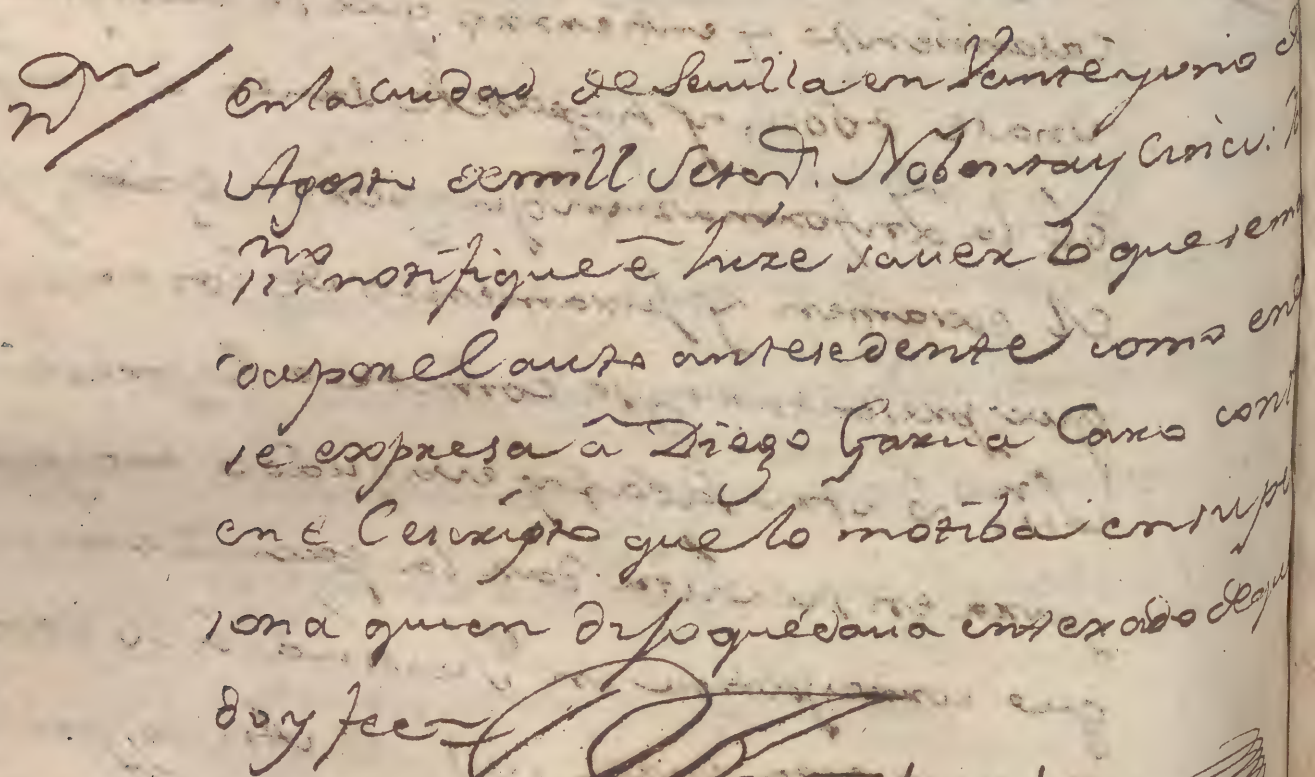 En la ciudad de Sevilla en Veinte y uno d
Agosto de mill Setezs. Nobenta y Cinco.
no notifique é hize saver lo que se m
por el auto antesedente como en e
se expresa â Diego Garcia Caro cont
en el escripto que lo motiba en su pe
sona quien dijo quedava enterado de qu
doy fee